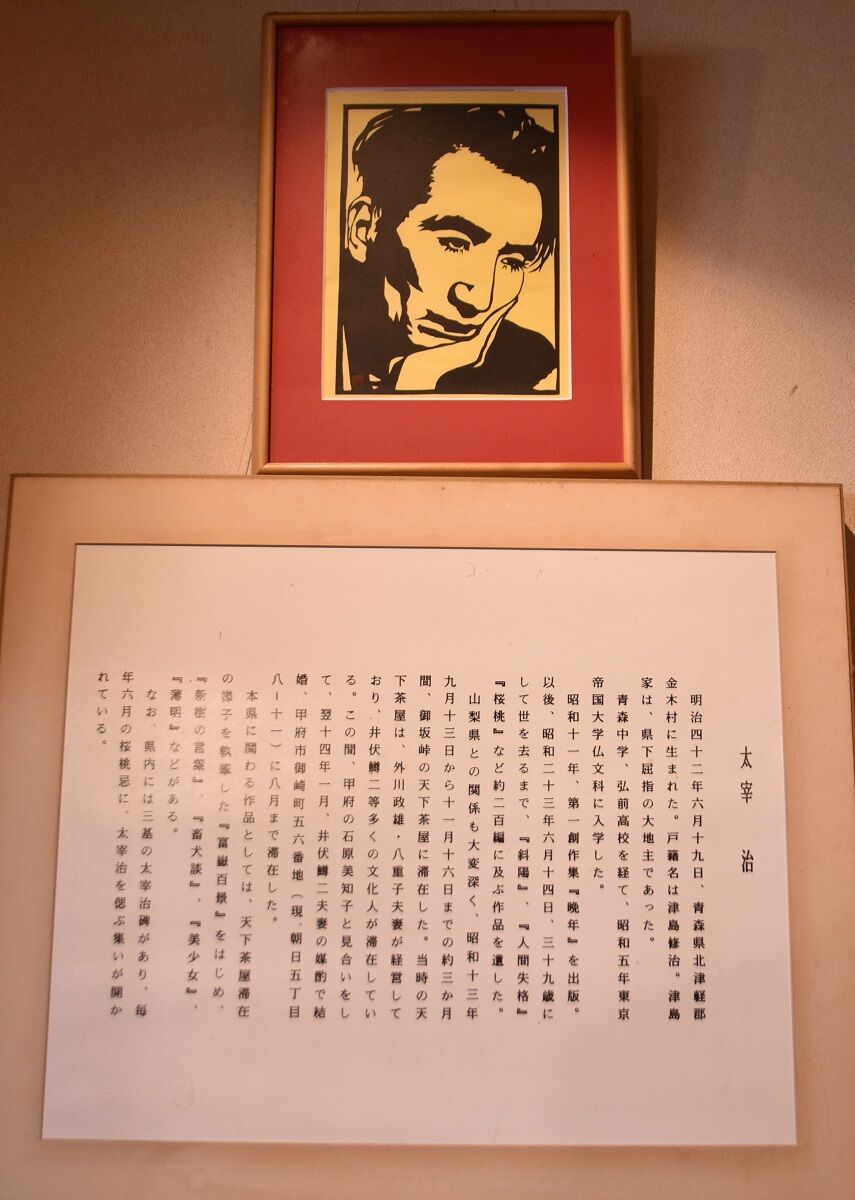 太宰 治
明治四十二年六月十九日、青森県北津軽郡
金木村に生まれた。戸籍名は津島修治。津島
家は、県下屈指の大地主であった。
青森中学、弘前高校を経て、昭和五年東京
帝国大学仏文科に入学した。
昭和十一年、第一創作集『晩年』を出版。
以後、昭和二十三年六月十四日、三十九歳に
して世を去るまで、『斜陽』、『人間失格』
『桜桃』など約二百編に及ぶ作品を遺した。
山梨県との関係も大変深く、昭和十三年
九月十三日から十一月十六日までの約三か月
間、御坂峠の天下茶屋に滞在した。当時の天
下茶屋は、外川政雄・八重子夫妻が経営して
おり、井伏鱒二等多くの文化人が滞在してい
る。この間、甲府の石原美知子と見合いをし
て、翌十四年一月、井伏鱒二夫妻の媒酌で結
婚、甲府市御崎町五六番地（現、朝日五丁目
八ー十一）に八月まで滞在した。
本県に関わる作品としては、天下茶屋滞在
の様子を執筆した『富嶽百景』をはじめ、
『新樹の言葉』、『畜犬談』、『美少女』、
『薄明』などがある。
なお、県内には三基の太宰治碑があり、毎
年六月の桜桃忌に、太宰治を偲ぶ集いが開か
れている。